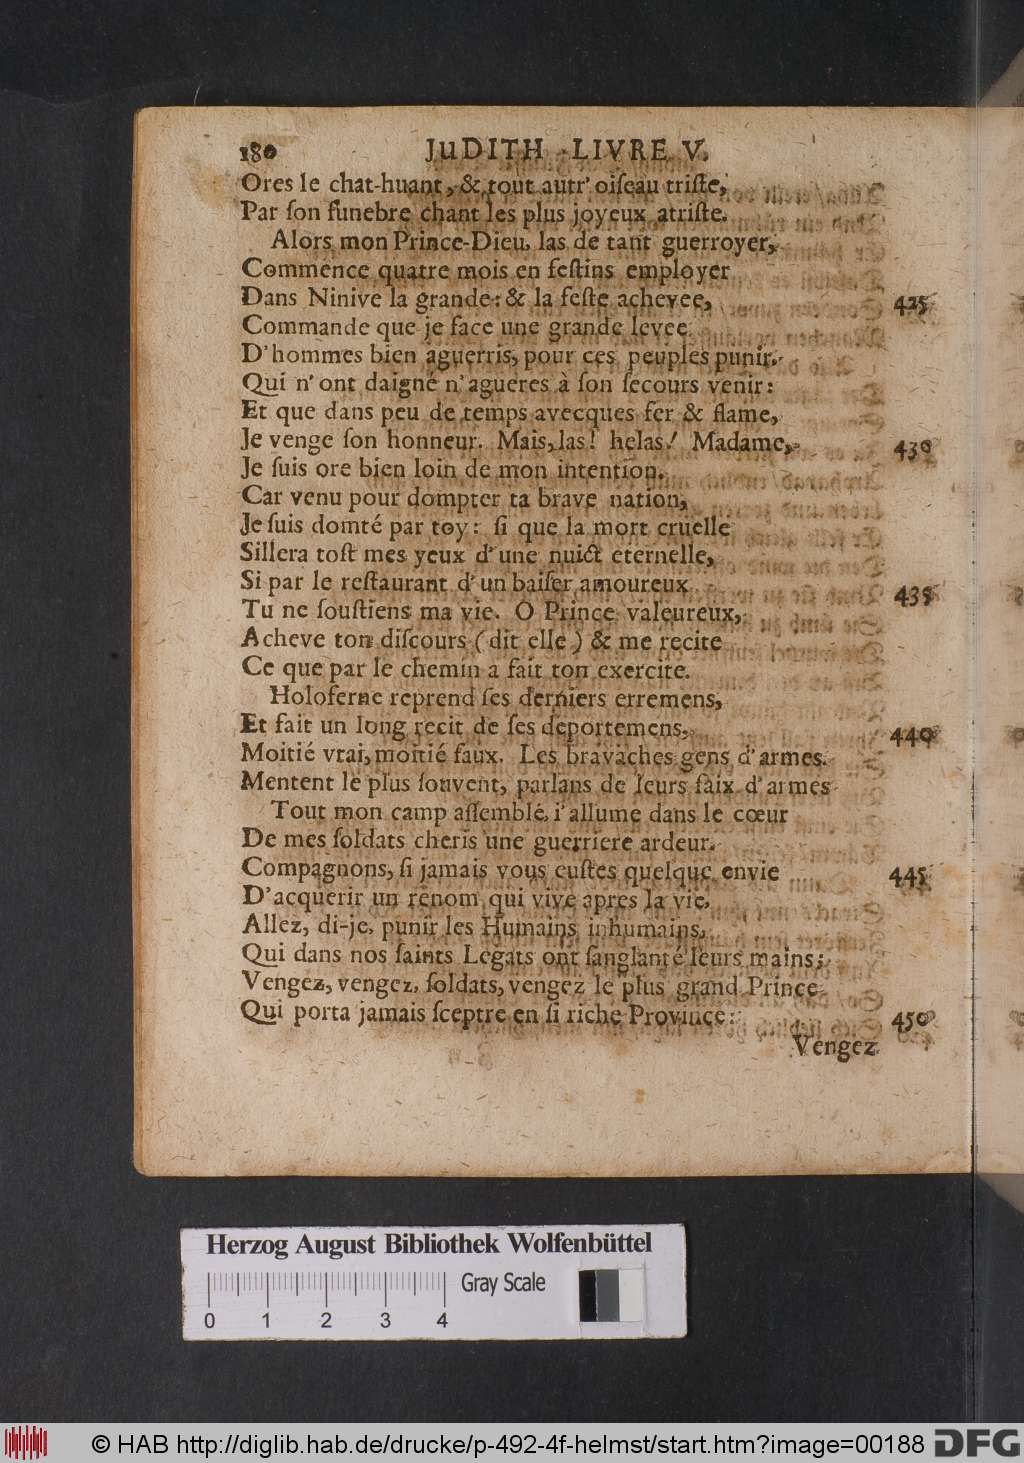 180 JUDITH LIVRE V.
Ores le chat-huant, & tout autr' oiſeau triſte,
Par ſon funebre chant les plus joyeux atriſte.
Alors mon Prince-Dieu, las de tant guerroyer,
Commence quatre mois en feſtins employer
Dans Ninive la grande: & la feſte achevee, 425
Commande que je face une grande levee
D'hommes bien aguerris, pour ces peuples punir,
Qui n'ont daigné n'agueres à ſon ſecours venir:
Et que dans peu de temps avecques fer & flame,
Je venge ſon honneur. Mais, las! helas! Madame, 430
Je ſuis ore bien loin de mon intention,
Car venu pour dompter ta brave nation,
Je ſuis domté par toy: ſi que la mort cruelle
Sillera toſt mes yeux d'une nuict eternelle,
Si par le reſtaurant d'un baiſer amoureux 435
Tu ne ſouſtiens ma vie. O Prince valeureux,
Acheve ton diſcours (dit elle) & me recite
Ce que par le chemin a fait ton exercite.
Holoferne reprend ſes derniers erremens,
Et fait un long recit de ſes deportemens, 440
Moitié vrai, moitié faux. Les bravaches gens d'armes.
Mentent le plus ſouvent, parlans de leurs faix d'armes
Tout mon camp aſſemblé, i'allume dans le cœur
De mes ſoldats cheris une guerriere ardeur.
Compagnons, ſi jamais vous euſtes quelque envie 445
D'acquerir un renom qui vive apres la vie,
Allez, di-je, punir les Humains inhumains,
Qui dans nos ſaints Legats ont ſanglanté leurs mains;
Vengez, vengez, ſoldats, vengez le plus grand Prince
Qui porta jamais ſceptre en ſi riche Province: 450
Vengez
Herzog August Bibliothek Wolfenbüttel
Gray Scale
0 1 2 3 4
© HAB http://diglib.hab.de/drucke/p-492-4f-helmst/start.htm?image=00188 DFG